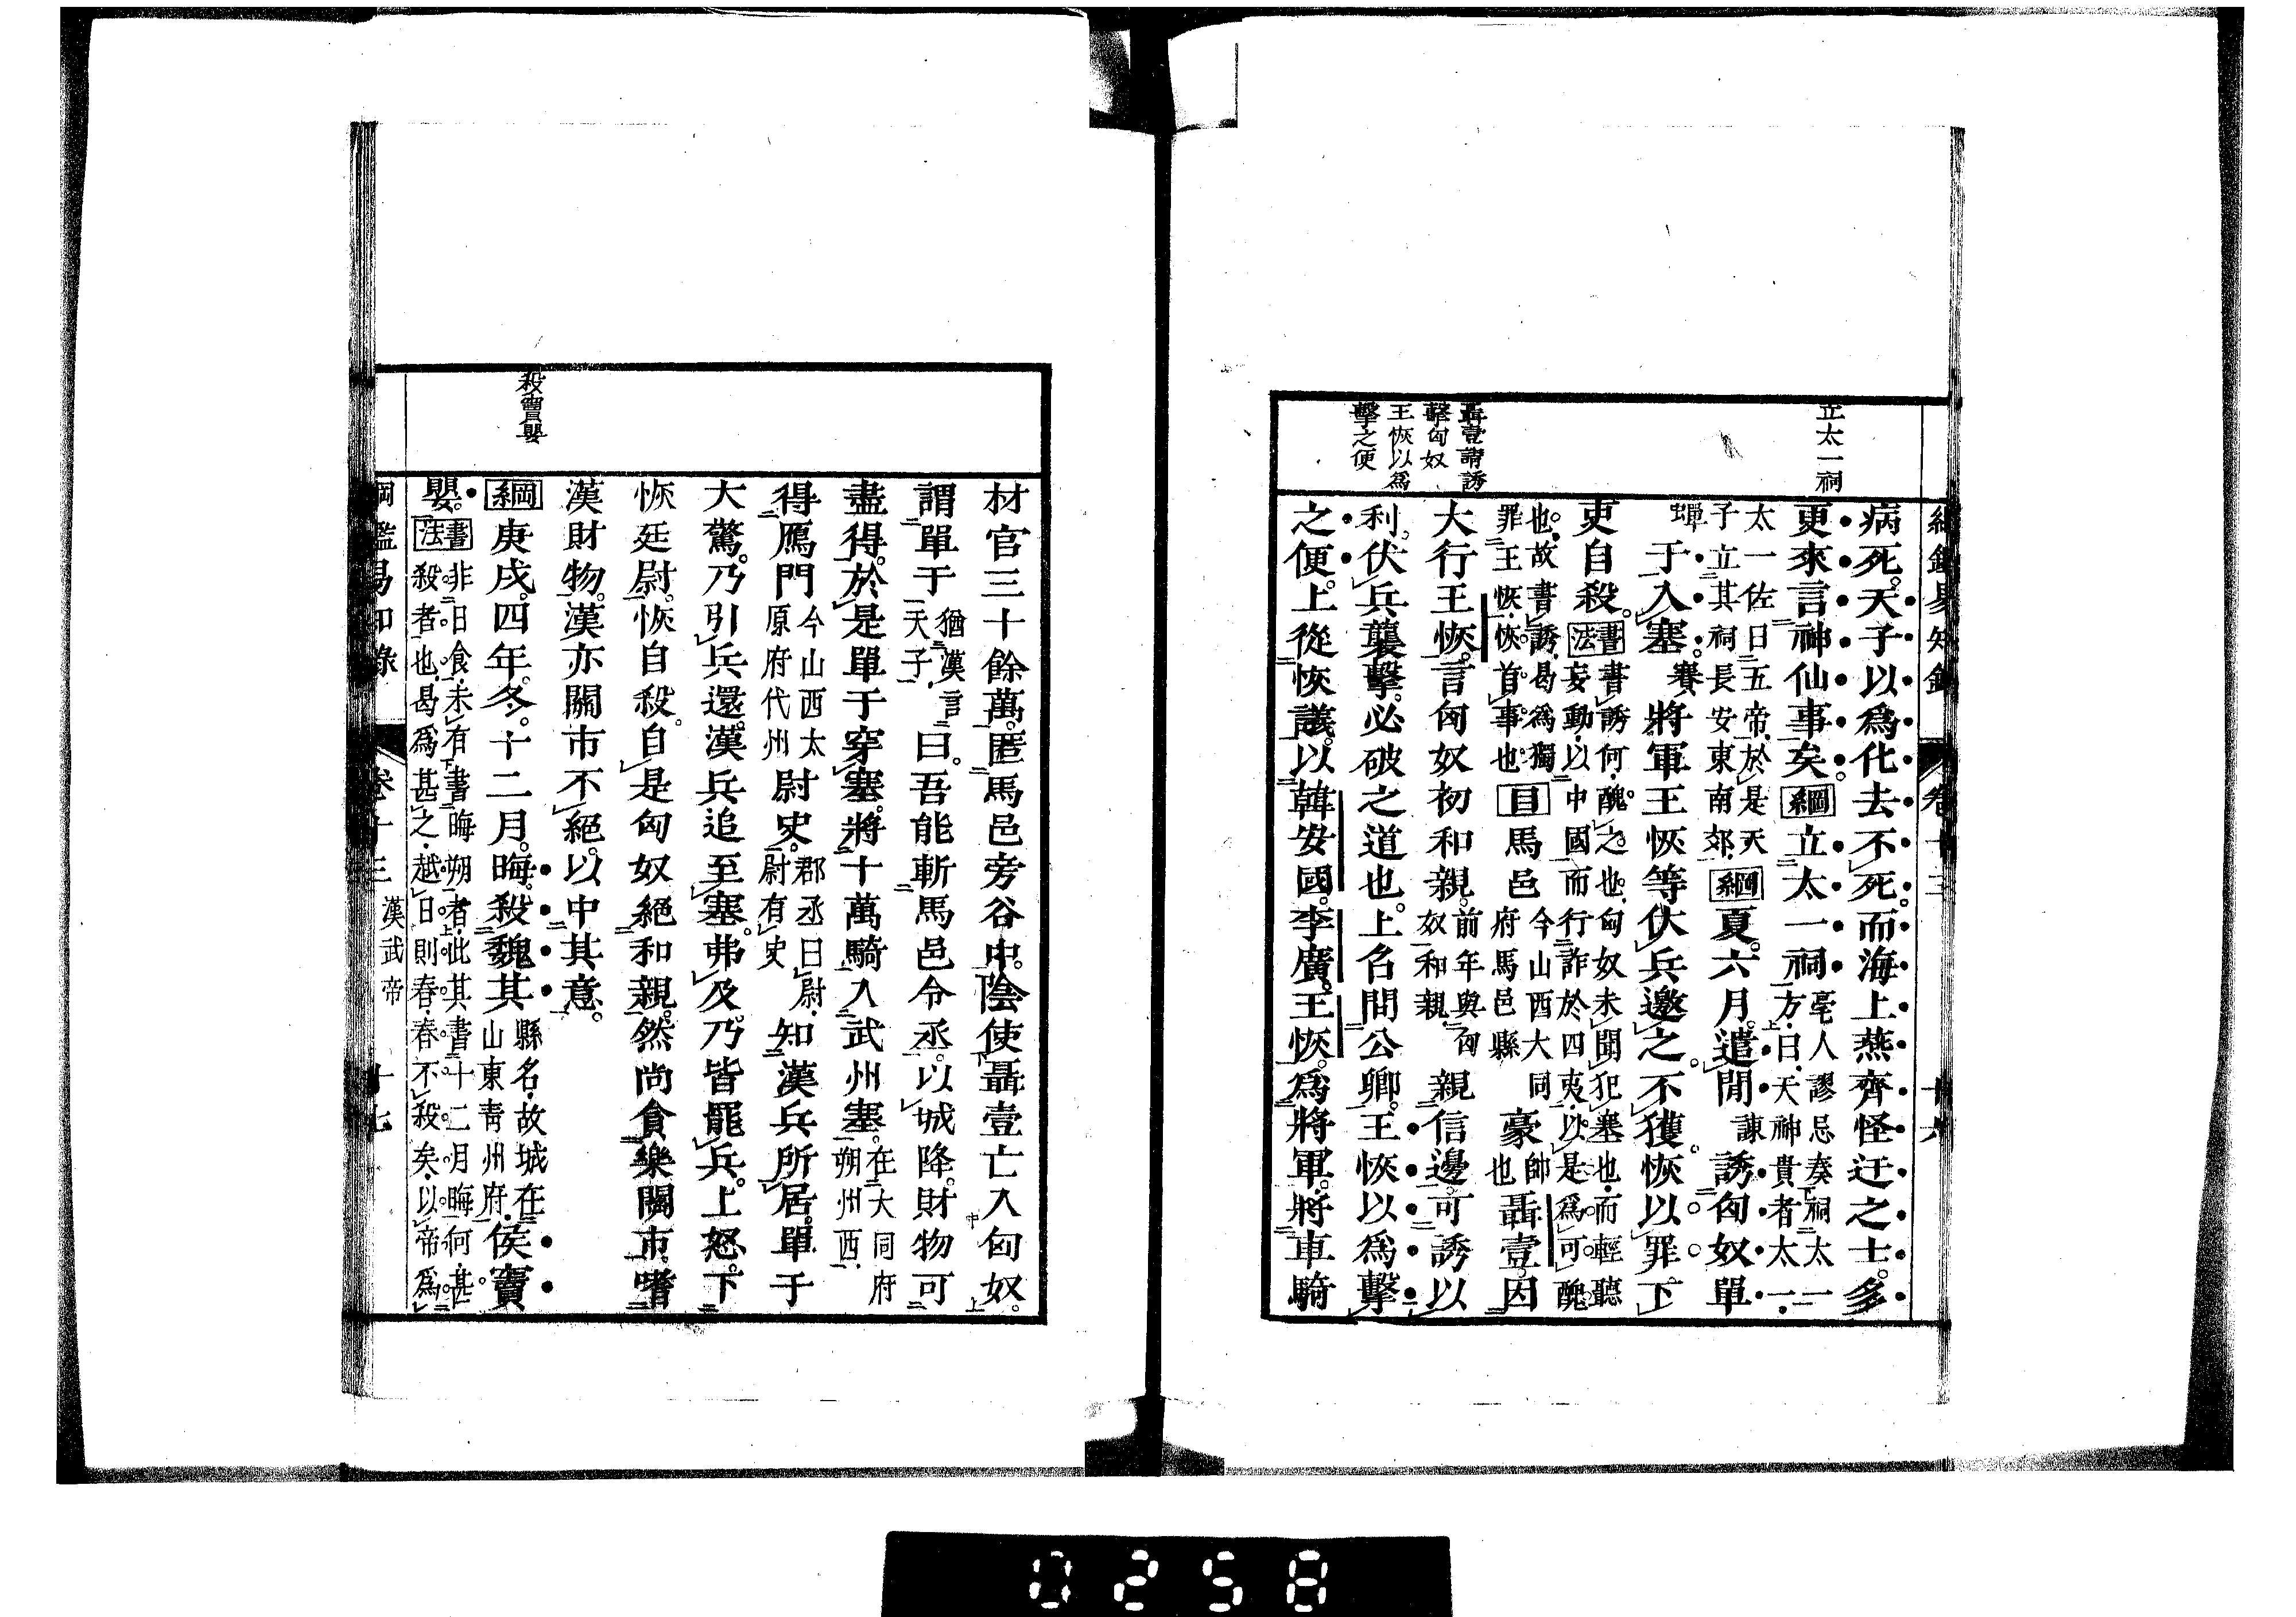 立太一祠
聶壹請誘
擊匈奴
王恢以爲
擊之便
卷十三
十六
病死。天子以爲化去不死。而海上燕齊怪迂之士。多
更來言神仙事矣。綱立太一祠亳人謬忌奏祠太一
方曰天神貴者太一
太一佐曰五帝於是天
子立其祠長安東南郊綱夏六月。遣間諫誘匈奴單
蟬于入塞賽將軍王恢等伏兵邀之。不獲。恢以罪下
吏自殺。書法書誘何醜之也匈奴未聞犯塞也而輕聽
妄動以中國而行詐於四夷以是爲可醜
也故書誘曷爲獨
罪王恢恢首事也目馬邑今山西大同
府馬邑縣豪帥
也聶壹因
大行王恢。言匈奴初和親。前年與匈
奴和親親信邊。可誘以
利。伏兵襲擊。必破之道也。上召問公卿。王恢以爲擊
之便。上從恢議。以韓安國。李廣。王恢。爲將軍。將車騎
材官三十餘萬。匿馬邑旁谷中。陰使聶壹亡入匈奴。
謂單于猶漢言
天子曰。吾能斬馬邑令丞。以城降。財物可
盡得。於是單于穿塞。將十萬騎入武州塞。在大同府
朔州西
得鴈門今山西太
原府代州尉史。郡丞曰尉
尉有史知漢兵所居。單于
大驚。乃引兵還。漢兵追至塞。弗及。乃皆罷兵。上怒。下
恢廷尉。恢自殺。自是匈奴絕和親。然尚貪樂關市。嗜
漢財物。漢亦關市不絕。以中其意。
綱庚戌。四年。冬。十二月。晦。殺魏其縣名故城在
山東青州府侯竇
嬰。書法非日食未有書晦朔者此其書十二月晦何甚
殺者也曷爲甚之越日則春春不殺矣以帝爲
殺竇嬰
卷十三
漢武帝
十七
0258